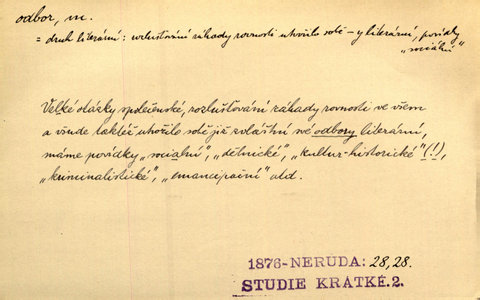 odbor, m.
= druh literární: rozlušťování záhady rovnosti utvořilo sobě – y literární, povídky
„sociální"
Velké otázky společenské, rozlušťování záhady rovnosti ve všem
a všude taktéž utvořilo sobě již zvláštní své odbory literární,
máme povídky „sociální", „dělnické", „kultur-historické" (!),
„kriminalistické", „emancipační" atd.
1876-NERUDA: 28, 28.
STUDIE KRÁTKÉ. 2.